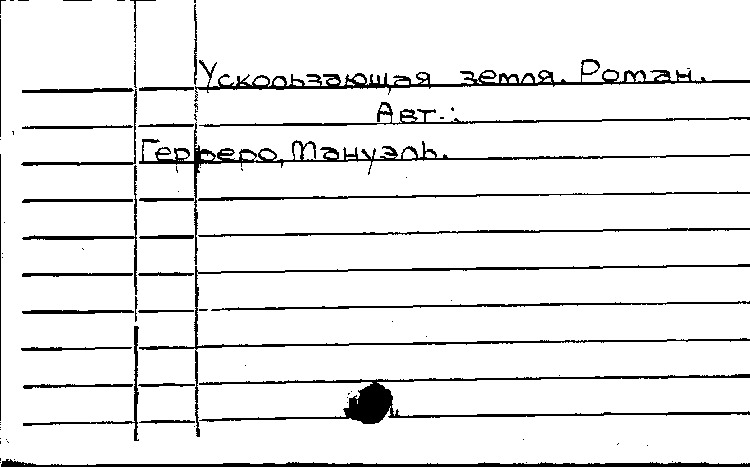 Ускользающая земля. Роман.
Авт.:
Герреро, Мануэль.